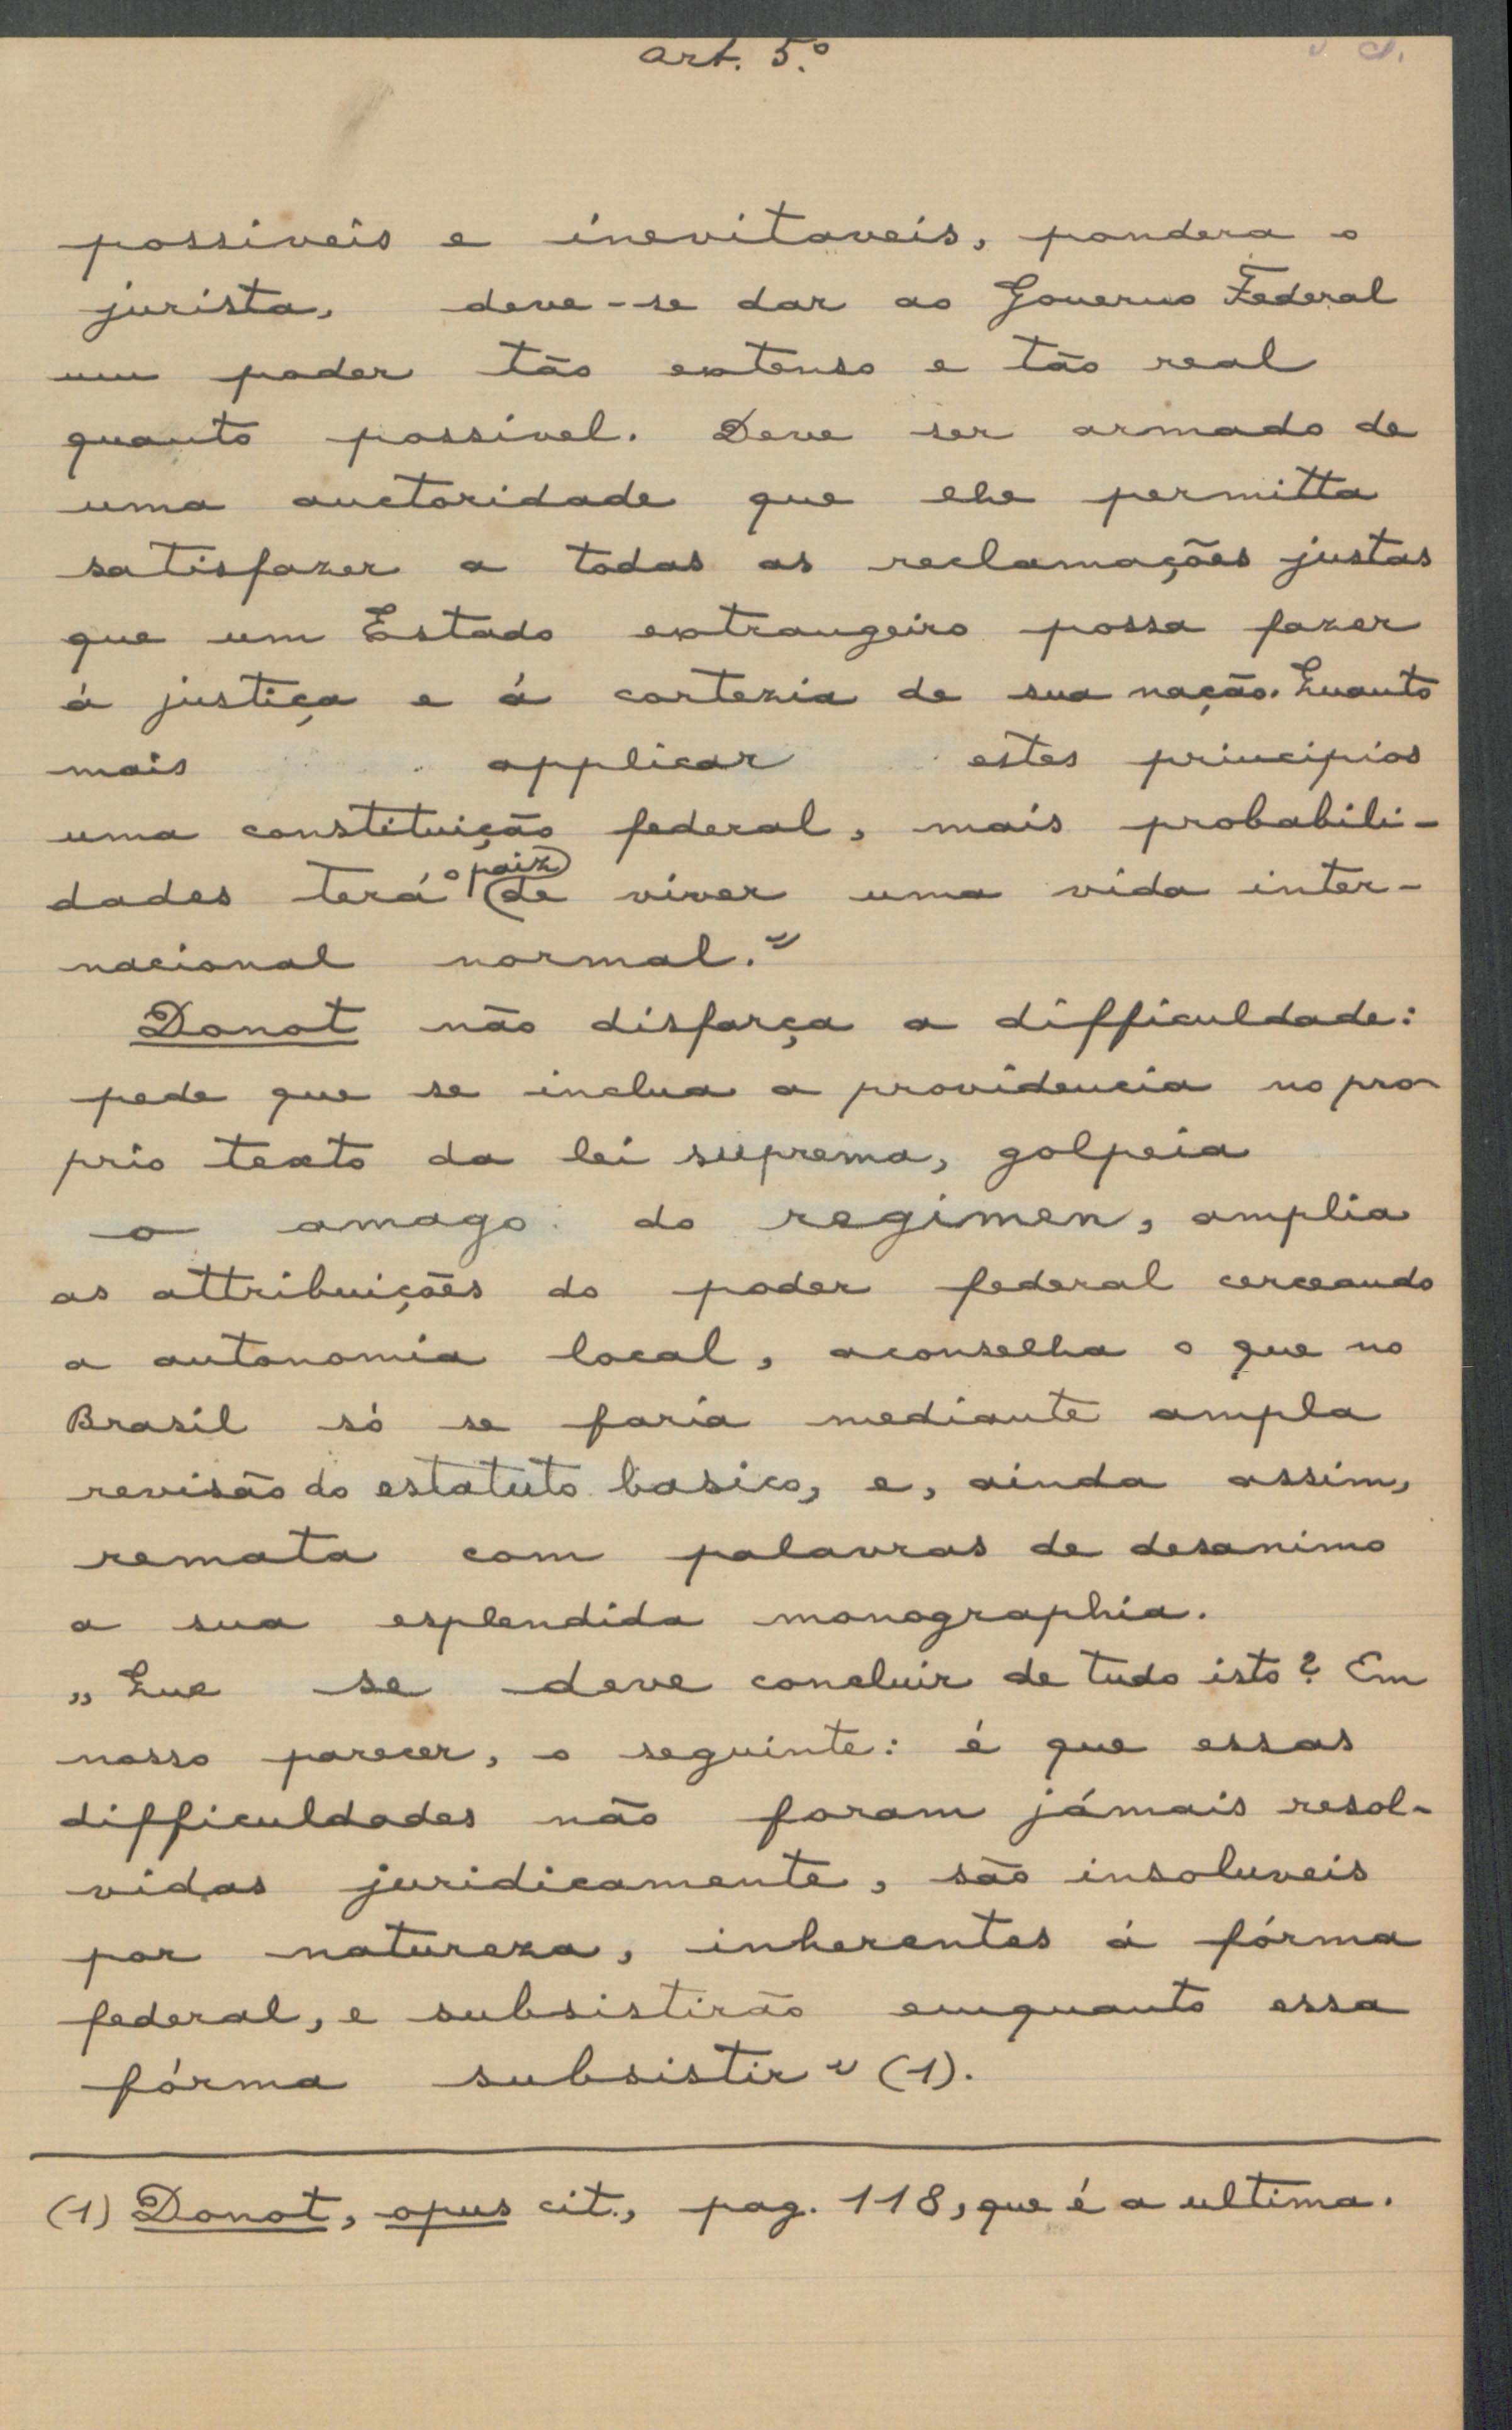 Art. 5.º
possiveis e inevitaveis, pondera o
jurista, deve-se dar ao Governo Federal
um poder tão extenso e tão real
quanto possivel. Deve ser armado de
uma auctoridade que lhe permitta
satisfazer a todas as reclamações justas
que um Estado extrangeiro possa fazer
á justiça e á cortezia de sua nação. Quanto
mais applicar estes principios
uma constituição federal, mais probabili-
dades terá o paiz de viver uma vida inter-
nacional normal."
Donot não disfarça a difficuldade:
pede que se inclua a providencia no pro-
prio texto da lei suprema, golpeia
o amago do regimen, amplia
as attribuições do poder federal cerceando
a autonomia local, aconselha o que no
Brasil só se faria mediante ampla
revisão do estatuto basico, e, ainda assim,
remata com palavras de desanimo
a sua esplendida monographia.
„Que se deve concluir de tudo isto? Em
nosso parecer, o seguinte: é que essas
difficuldades não foram jámais resol-
vidas juridicamente, são insoluveis
por natureza, inherentes á fórma
federal, e subsistirão emquanto essa
fórma subsistir" (1).
(1) Donot, opus cit., pag. 118, que é a ultima.